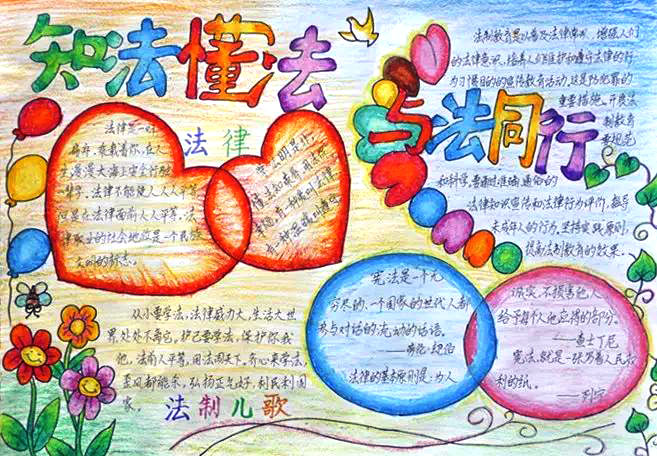 知法懂法
与法同行
法律
法律是一叶
扁舟，乘载着你，在人
生漫漫大海上安全行驶。
法律不能使人人平等，
但是在法律面前人人平等，法
律职业的社会地位是一个民族
文明的标志。
法制教育是以普及法律常识、增强人们
的法律意识、培养人们维护和遵守法律的行
为习惯目的的宣传教育活动，这是防犯罪的
重要措施。开展法
制教育
要规范
和科学，要通过准确、通俗的
法律知识宣传和法律行为评价，教导
未成年人的行为，坚持实践原则，
提高法制教育的效果。
宪法是一个无
穷尽的、一个国家的世代人都
参与对话的流动的话语。
——劳伦·却伯
法律的基本原则是：为人
诚实，不损害他人，
给予每个人他应得的部分。
——查士丁尼
宪法，就是一张写着人民权
利的纸。
——列宁
从小要学法，法律威力大，生活大世
界，处处不离它。护己要学法，保护你我
他，法前人平等，用法闯天下。齐心来学法，
歪风都能杀，弘扬正气好，利民利国
家。
法制儿歌